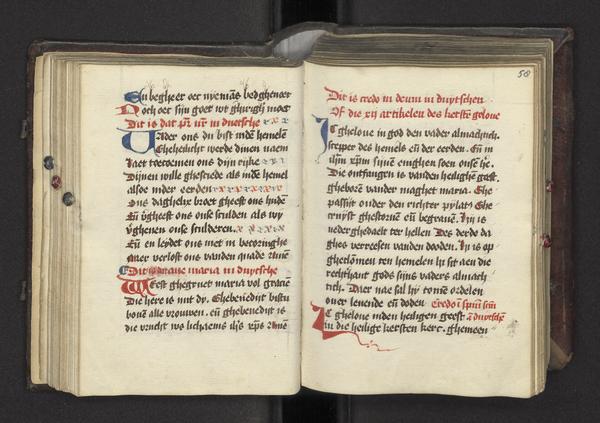 En begheer oec nyemās bedghenoet
Noch oec sijn goet
Dit is dat pr̄ nr̄ in duetsche
Uader ons du bist inde hemelē
Ghehelicht werde dinen naem
Laet toecomen ons dijn rijke
Dijnen wille ghescriede als inde hemel
alsoe inder eerden
Ons daghelix broet gheeft ons huden
Eū vgheeft ons onse sculden als wy
vghenen onse sculderen
Eū en leydet ons niet in becoringhe
Maer verlost ons vanden quade amē
Dit is aue maria in duytsche
West ghegruet maria vol gracie
Die here is mit dy. Ghebenedijt bistu
bouē alle vrouwen. eū ghebenedijt is
die vrucht ws lichaems amē
58
Dit is credo in deum in duytschen
Of die xij artikelen des kerstē geloue
Ic gheloue in god den vader almachtich
scepper des hemels eū der eerden. Eū in
ihm xpm sijnē eingheu soen onsē he.
Die ontfangen is vanden heilighē geest.
gheborē vander maghet maria. Ghe
passijt onder den richter pylatꝰ Ghe
cruyst ghestoruē eū begrauē. Hij is
nederghedaelt ter hellen Des derde da
ghes verresen vanden doden. Hi is op
gheclōmen ten hemelen hi sit aen die
rechthant gods sijns vaders almach
tich. Daer nae sal hy comē ordelen
ouer leuende eū doden Credo ī spm̄ scm̄
Ic gheloue inden heilighen geest ī duytschē
in die heilige kersten kerc. ghemeen